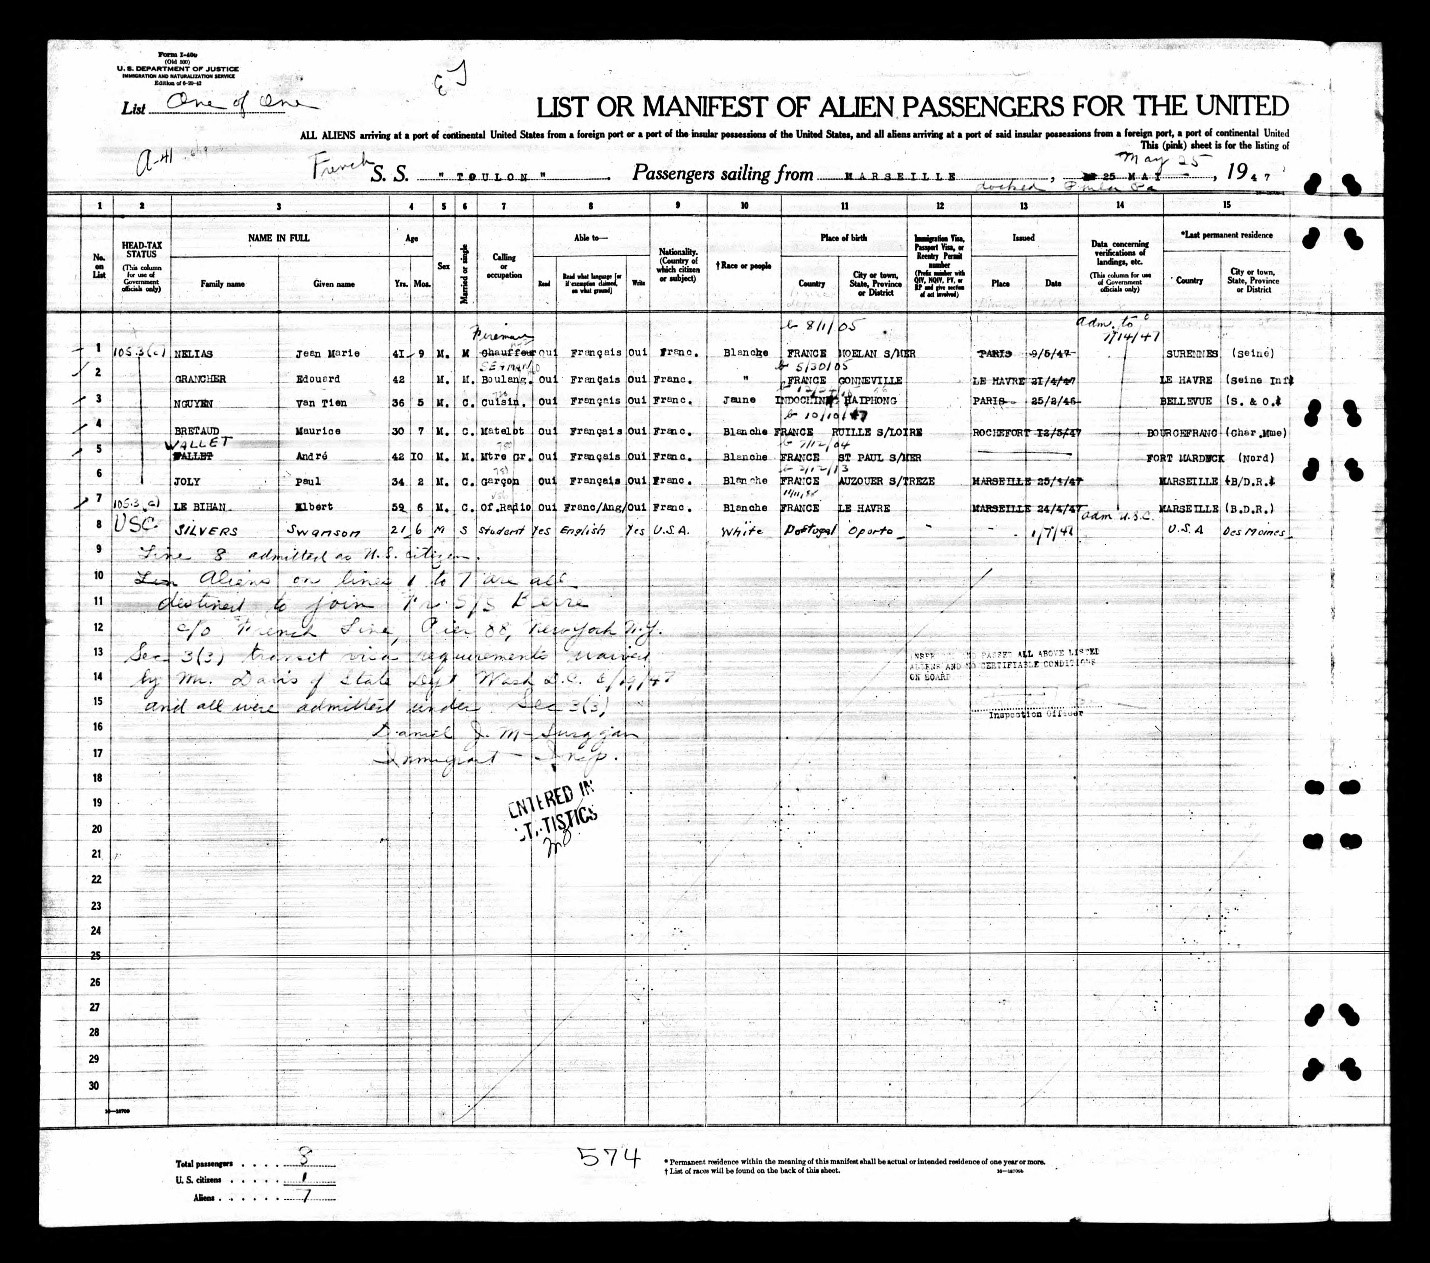 Form I-40b
(Old 500)
U. S. DEPARTMENT OF JUSTICE
IMMIGRATION AND NATURALIZATION SERVICE
List One of One
LIST OR MANIFEST OF ALIEN PASSENGERS FOR THE UNITED
ALL ALIENS arriving at a port of continental United States from a foreign port or a port of the insular possessions of the United States, and all aliens arriving at a port of said insular possessions from a foreign port, a port of continental United
This (pink) sheet is for the listing of
A-41
May 25
French S. S. " TOULON " Passengers sailing from MARSEILLE , 25 MAI , 1947
docked
1 2 3 4 5 6 7 8 9 10 11 12 13 14 15
No. on List
HEAD-TAX STATUS (This column for use of Government officials only)
NAME IN FULL
Family name
Given name
Age
Yrs. Mos.
Sex
Married or single
Calling or occupation
Able to—
Read
Read what language [or if exemption claimed, on what ground]
Write
Nationality. (Country of which citizen or subject)
† Race or people
Place of birth
Country
City or town, State, Province or District
Immigration Visa, Passport Visa, or Reentry Permit number (Prefix number with QIV, NQIV, PV, or RP and give section of act involved)
Issued
Place
Date
Data concerning verifications of landings, etc. (This column for use of Government officials only)
*Last permanent residence
Country
City or town, State, Province or District
Fireman
b 8/1/05
adm. to
7/14/47
1 105.3(c) NELIAS Jean Marie 41 9 M. M Chauffeur oui Français Oui Franc. Blanche FRANCE MOELAN S/MER PARIS 9/5/47 SURESNES (Seine)
b 5/30/05
2 GRANCHER Edouard 42 M. M. Boulang. Oui Français Oui Franc. " FRANCE GONNEVILLE LE HAVRE 21/4/47 LE HAVRE (Seine Inf
3 NGUYEN Van Tien 36 5 M. C. Cuisin. Oui Français Oui Franc. Jaune INDOCHINE HAIPHONG PARIS 25/2/46 BELLEVUE (S. & O.
b 10/10/
4 BRETAUD Maurice 30 7 M. C. Matelot Oui Français Oui Franc. Blanche FRANCE RUILLE S/LOIRE ROCHEFORT 12/5/47 BOURCEFRANC (Char.Mme)
WALLET
b 7/12/04
5 WALLET André 42 10 M. M. Mtre gr. Oui Français Oui Franc. Blanche FRANCE ST PAUL S/MER FORT MARDECK (Nord)
b 3/12/13
6 JOLY Paul 34 2 M. C. Garçon Oui Français Oui Franc. Blanche FRANCE AUZOUER S/TREZE MARSEILLE 25/4/47 MARSEILLE (B/D.R.
7 105.3 c) LE BIHAN Albert 59 6 M. C. Of.Radio Oui Franc/Ang/ Oui Franc. Blanche FRANCE LE HAVRE MARSEILLE 24/4/47 MARSEILLE (B.D.R.)
8 USC SILVERS Swanson 21 6 M S Student Yes English Yes U.S.A. White Portugal Oporto - - 1/7/41 adm U.S.C. U.S.A Des Moines
9 Line 8 admitted as U.S. citizen.
10 Aliens on lines 1 to 7 are all
11 destined to join Fr. S/S Berre
12 c/o French Line, Pier 88, New York N.Y.
13 Sec 3(3) transit visa requirements waived
14 by Mr. Davis of State Dept Wash D.C. 6/19/47
15 and all were admitted under Sec 3(3)
16 Daniel J.
17 Immigrant Insp.
PASSED ALL ABOVE LISTED
ALIENS AND NO CERTIFIABLE CONDITIONS
ON BOARD
Inspection Officer
18
ENTERED IN
STATISTICS
19
20
21
22
23
24
25
26
27
28
29
30
Total passengers 8
U. S. citizens 1
Aliens 7
574
* Permanent residence within the meaning of this manifest shall be actual or intended residence of one year or more.
† List of races will be found on the back of this sheet.